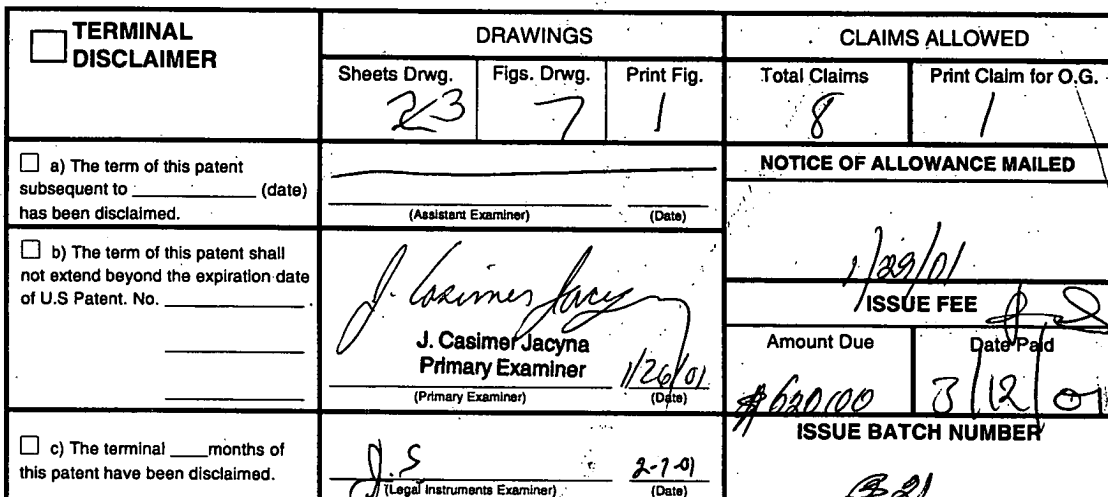 TERMINAL
DISCLAIMER
DRAWINGS
CLAIMS ALLOWED
Sheets Drwg.
Figs. Drwg.
Print Fig.
Total Claims
Print Claim for O.G.
23
7
1
8
1
a) The term of this patent
subsequent to ____________ (date)
has been disclaimed.
(Assistant Examiner)
(Date)
NOTICE OF ALLOWANCE MAILED
1/29/01
b) The term of this patent shall
not extend beyond the expiration date
of U.S Patent. No. ____________
J. Casimer Jacyna
J. Casimer Jacyna
Primary Examiner
1/26/01
(Primary Examiner)
(Date)
ISSUE FEE
Amount Due
Date Paid
$620.00
3/12/01
c) The terminal ____months of
this patent have been disclaimed.
J.S
2-7-01
(Legal Instruments Examiner)
(Date)
ISSUE BATCH NUMBER